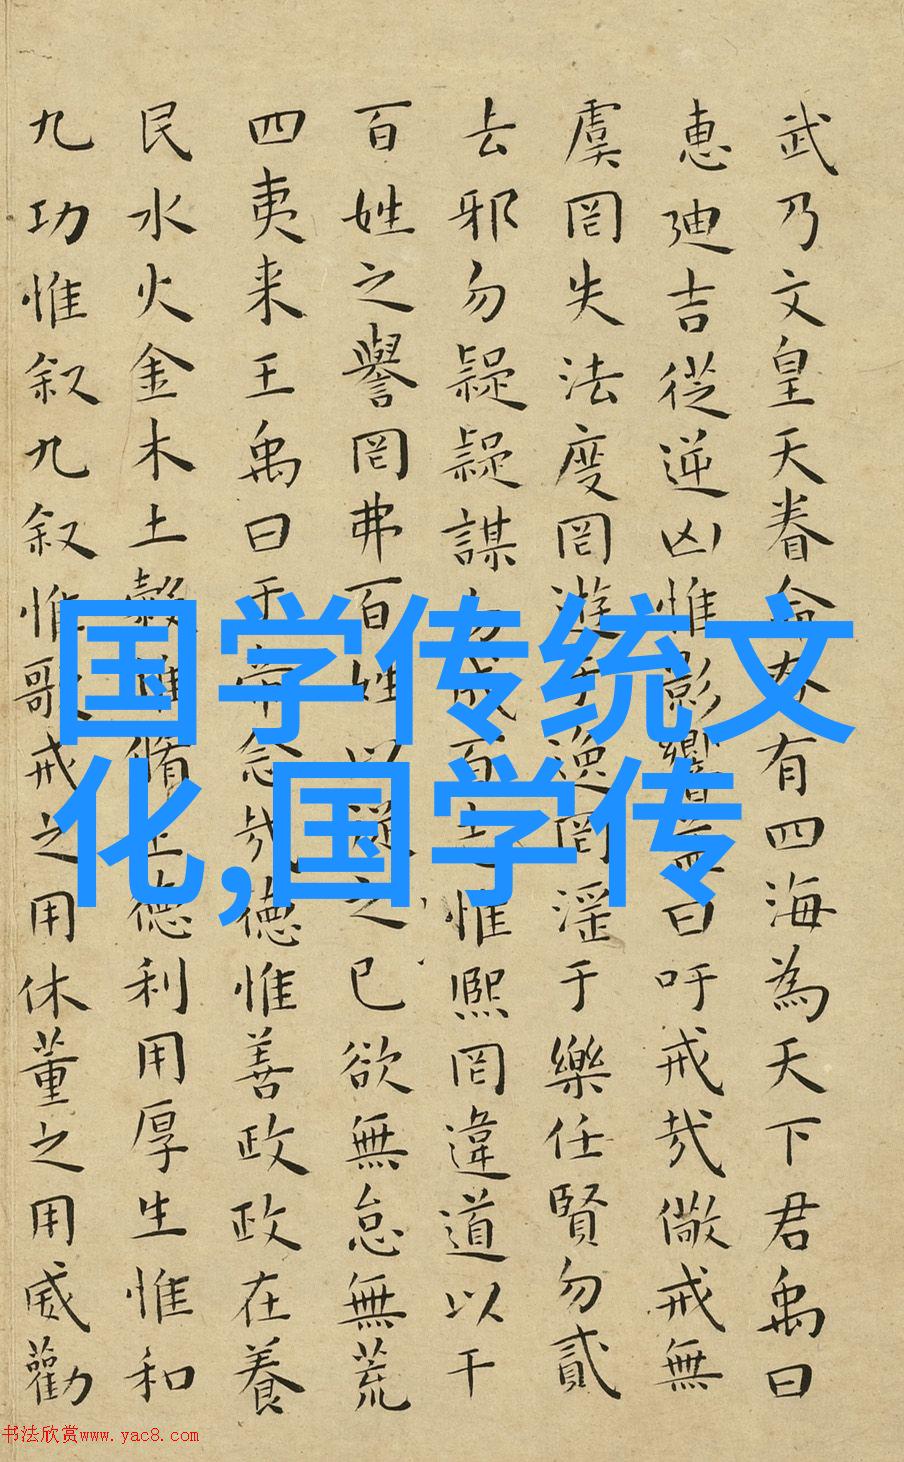 武乃文皇天眷命有四海為天下君禹曰
惠迪吉從逆凶惟影響曰吁戒哉儆戒無
虞罔失法度罔遊于逸罔淫于樂任賢勿貳
去邪勿疑疑謀勿成百惟熙罔違道以干
百姓之譽罔弗百姓以從之已欲無怠無荒
四夷来王禹曰于帝念哉德惟善政政在養
民水火金木土穀惟脩正德利用厚生惟和
九功惟叙九叙惟歌戒之用休董之用威勸
国学传统文
化,国学传
书法欣赏www.yac8.com